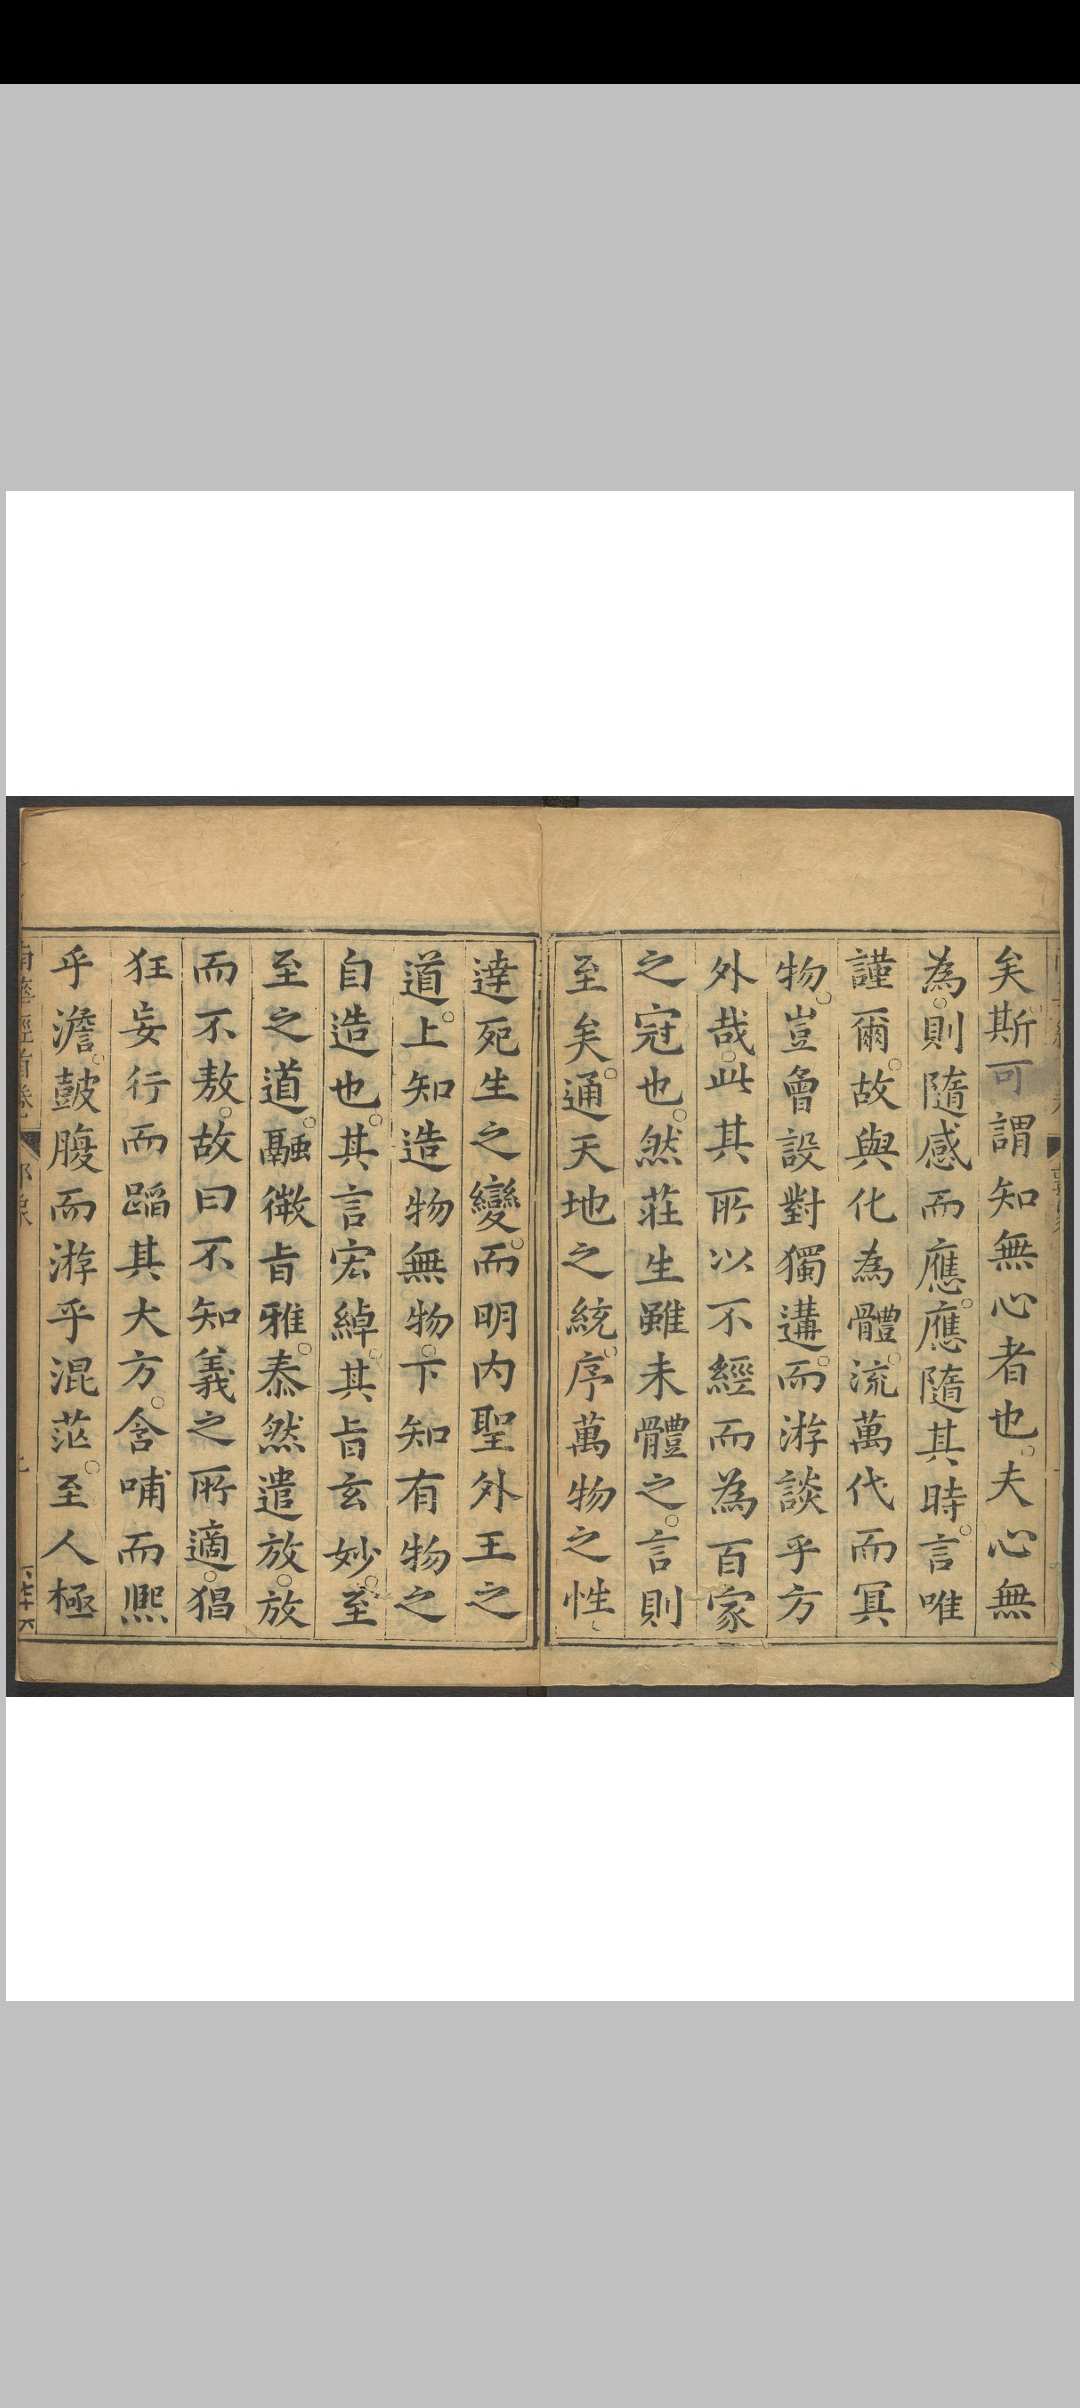 矣斯可謂知無心者也夫心無
為則隨感而應應隨其時言唯
謹爾故與化為體流萬代而冥
物豈曾設對獨遘而游談乎方
外哉此其所以不經而為百家
之冠也然莊生雖未體之言則
至矣通天地之統序萬物之性
達死生之變而明内聖外王之
道上知造物無物下知有物之
自造也其言宏綽其旨玄妙至
至之道融微旨雅泰然遣放放
而不敖故曰不知義之所適猖
狂妄行而蹈其大方含哺而熙
乎澹鼓腹而游乎混茫至人極